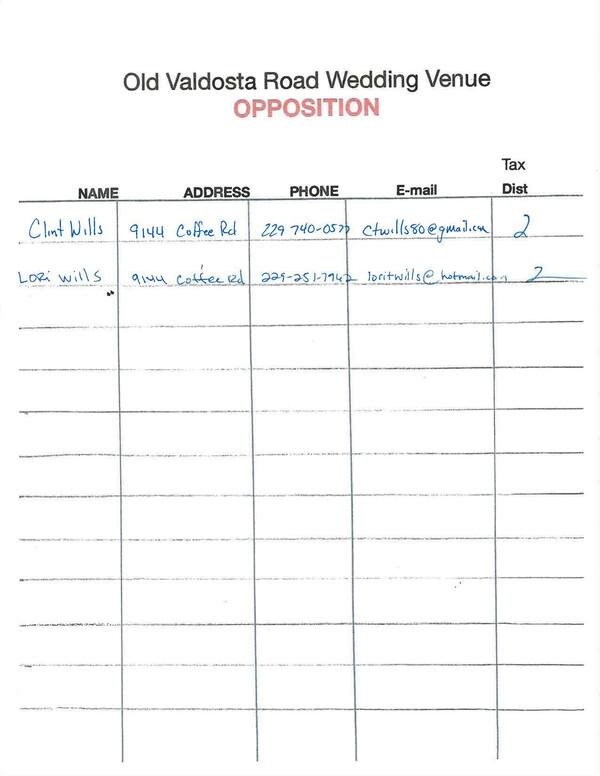 Old Valdosta Road Wedding Venue
OPPOSITION
NAME ADDRESS PHONE E-mail Tax Dist
Clint Wills 9144 Coffee Rd 229 740-0577 ctwills80@gmail.com 2
Lori Wills 9144 Coffee Rd 229-251-7942 loritwills@hotmail.com 2